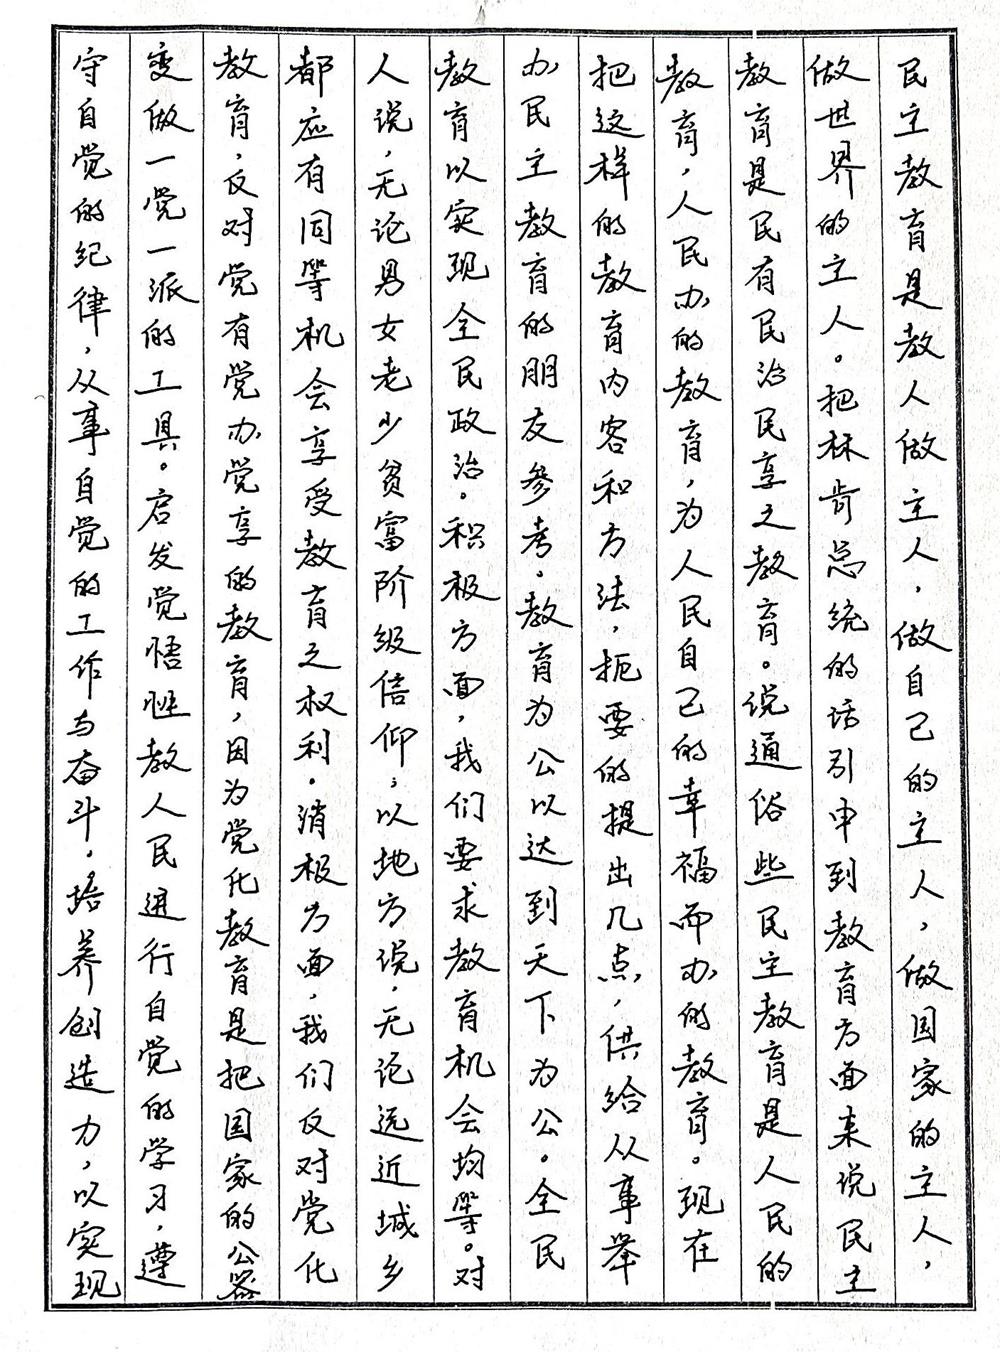 民主教育是教人做主人，做自己的主人，做国家的主人，
做世界的主人。把林肯总统的话引申到教育方面来说民主
教育是民有民治民享之教育。说通俗些民主教育是人民的
教育，人民办的教育，为人民自己的幸福而办的教育。现在
把这样的教育内容和方法，扼要的提出几点，供给从事举
办民主教育的朋友参考。教育为公以达到天下为公。全民
教育以实现全民政治。积极方面，我们要求教育机会均等。对
人说，无论男女老少贫富阶级信仰；以地方说，无论远近城乡
都应有同等机会享受教育之权利。消极方面，我们反对党化
教育，反对党有党办党享的教育，因为党化教育是把国家的公器
变做一党一派的工具。启发觉悟性教人民进行自觉的学习，遵
守自觉的纪律，从事自觉的工作与奋斗。培养创造力，以实现